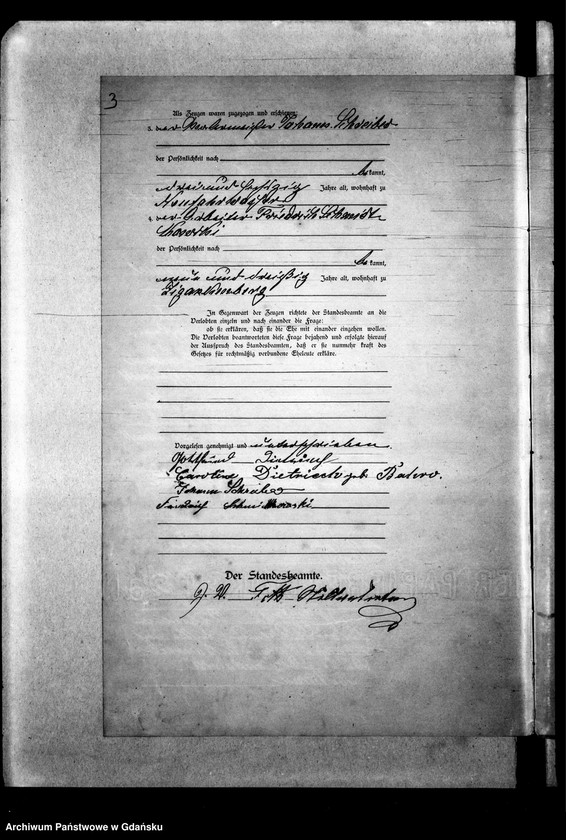 3
Als Zeugen waren zugezogen und erschienen:
3. der Johann Schreiber
der Persönlichkeit nach
be kannt,
dreiund sechzig Jahre alt, wohnhaft zu
Neufahrwasser
4. der Arbeiter Friedrich
der Persönlichkeit nach
be kannt,
neun und dreißig Jahre alt, wohnhaft zu
Zigankenberg
In Gegenwart der Zeugen richtete der Standesbeamte an die
Verlobten einzeln und nach einander die Frage:
ob sie erklären, daß sie die Ehe mit einander eingehen wollen.
Die Verlobten beantworteten diese Frage bejahend und erfolgte hierauf
der Ausspruch des Standesbeamten, daß er sie nunmehr kraft des
Gesetzes für rechtmäßig verbundene Eheleute erkläre.
Vorgelesen genehmigt und unterschrieben.
Caroline Dietrich geb.
Johann Schreiber
Friedrich
Der Standesbeamte.
Archiwum Państwowe w Gdańsku